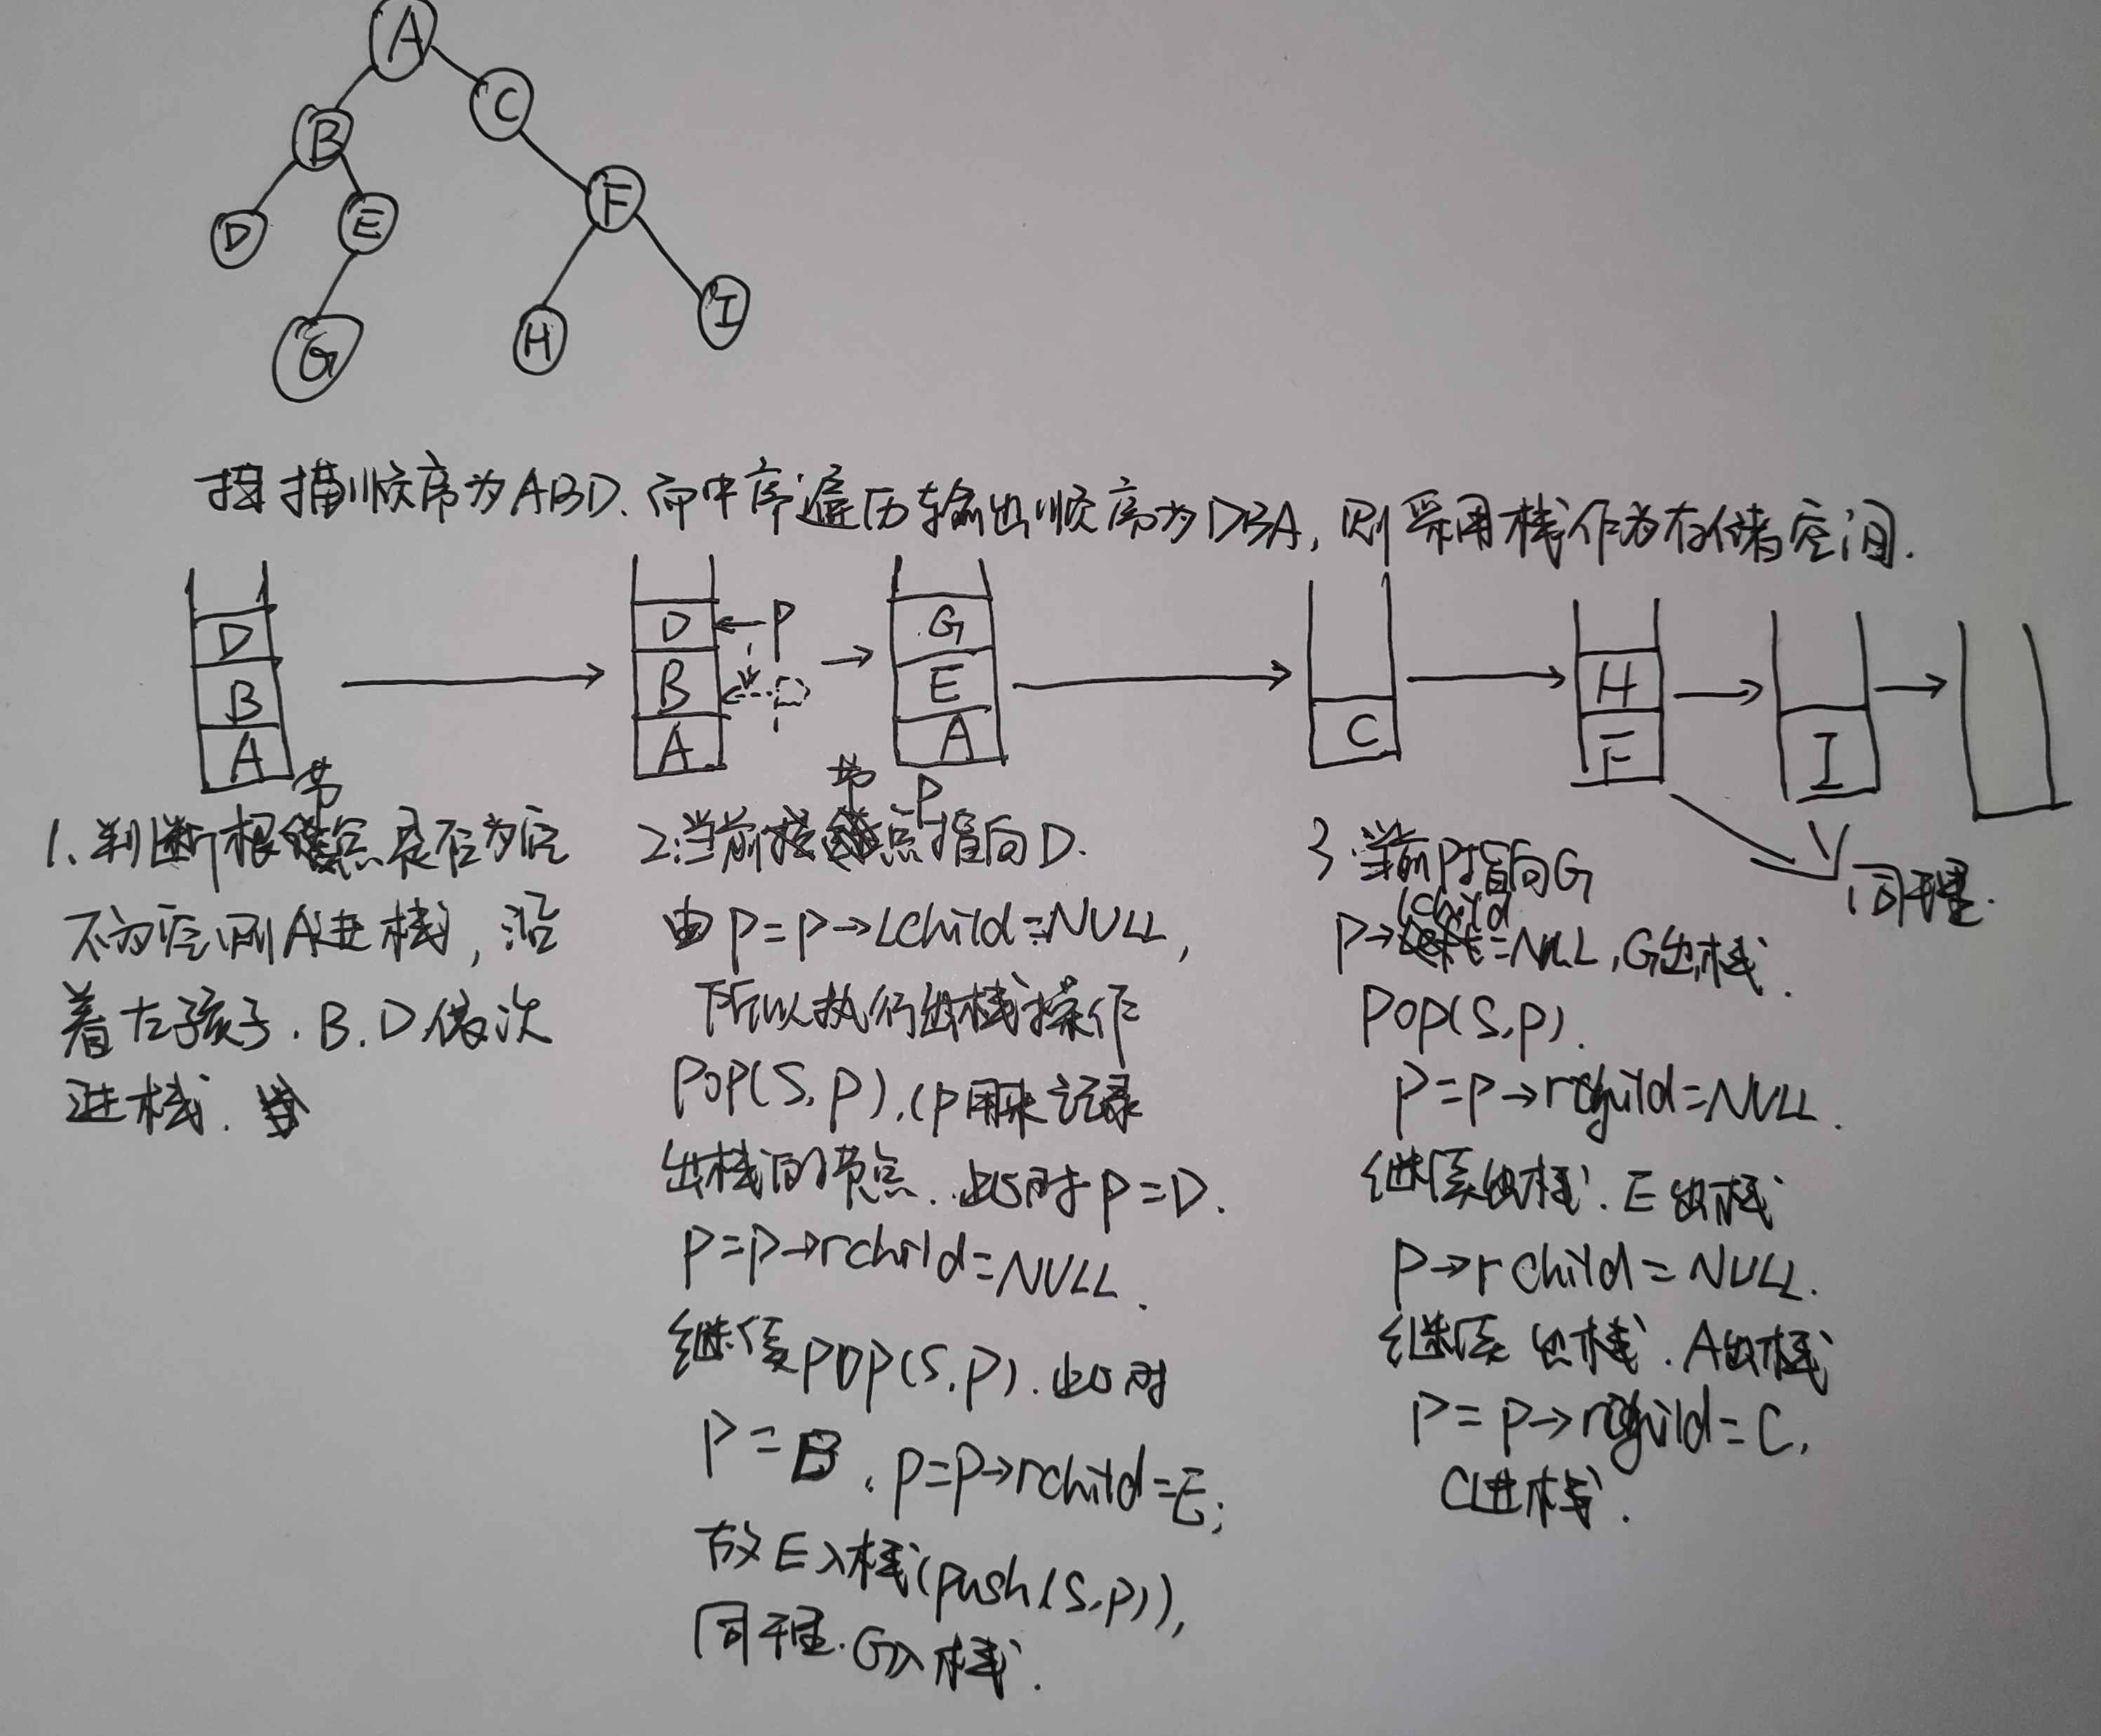 A
C
B
F
D
E
I
G
H
扫描顺序为ABD.而中序遍历输出顺序为DBA,则采用栈作为存储空间.
D
B
A
D
B
A
P
P
G
E
A
C
H
F
I
1.判断根节点是否为空
不为空,则A进栈,沿
着左孩子.B.D依次
进栈.
2.当前节点P指向D.
由P=P→Lchild=NULL,
所以执行出栈操作
POP(S,P).(P用来记录
出栈的节点.此时P=D.
P=P→rchild=NULL.
继续POP(S,P).此时
P=B.P=P→rchild=E;
故E入栈(push(S,P)),
同理.G入栈.
3.当前P指向G
P→lchild=NULL,G出栈.
POP(S,P).
P=P→rchild=NULL.
继续出栈.E出栈
P→rchild=NULL.
继续出栈.A出栈
P=P→rchild=C,
C进栈.
同理.